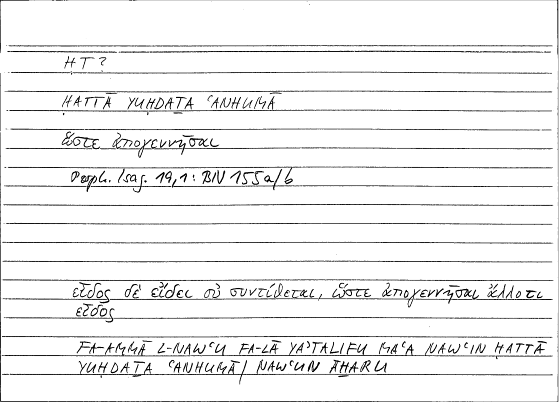 ḤT?
ḤATTĀ YUḤDAṮA ʿANHUMĀ
ὥστε ἀπογεννῆσαι
Porph. Isag. 19,1: BN 155a/6
εἶδος δὲ εἴδει οὐ συντίθεται, ὥστε ἀπογεννῆσαι ἄλλο τι
εἶδος
FA-AMMĀ L-NAWʿU FA-LĀ YAʾTALIFU MAʿA NAWʿIN ḤATTĀ
YUḤDAṮA ʿANHUMĀ/ NAWʿUN ĀḪARU